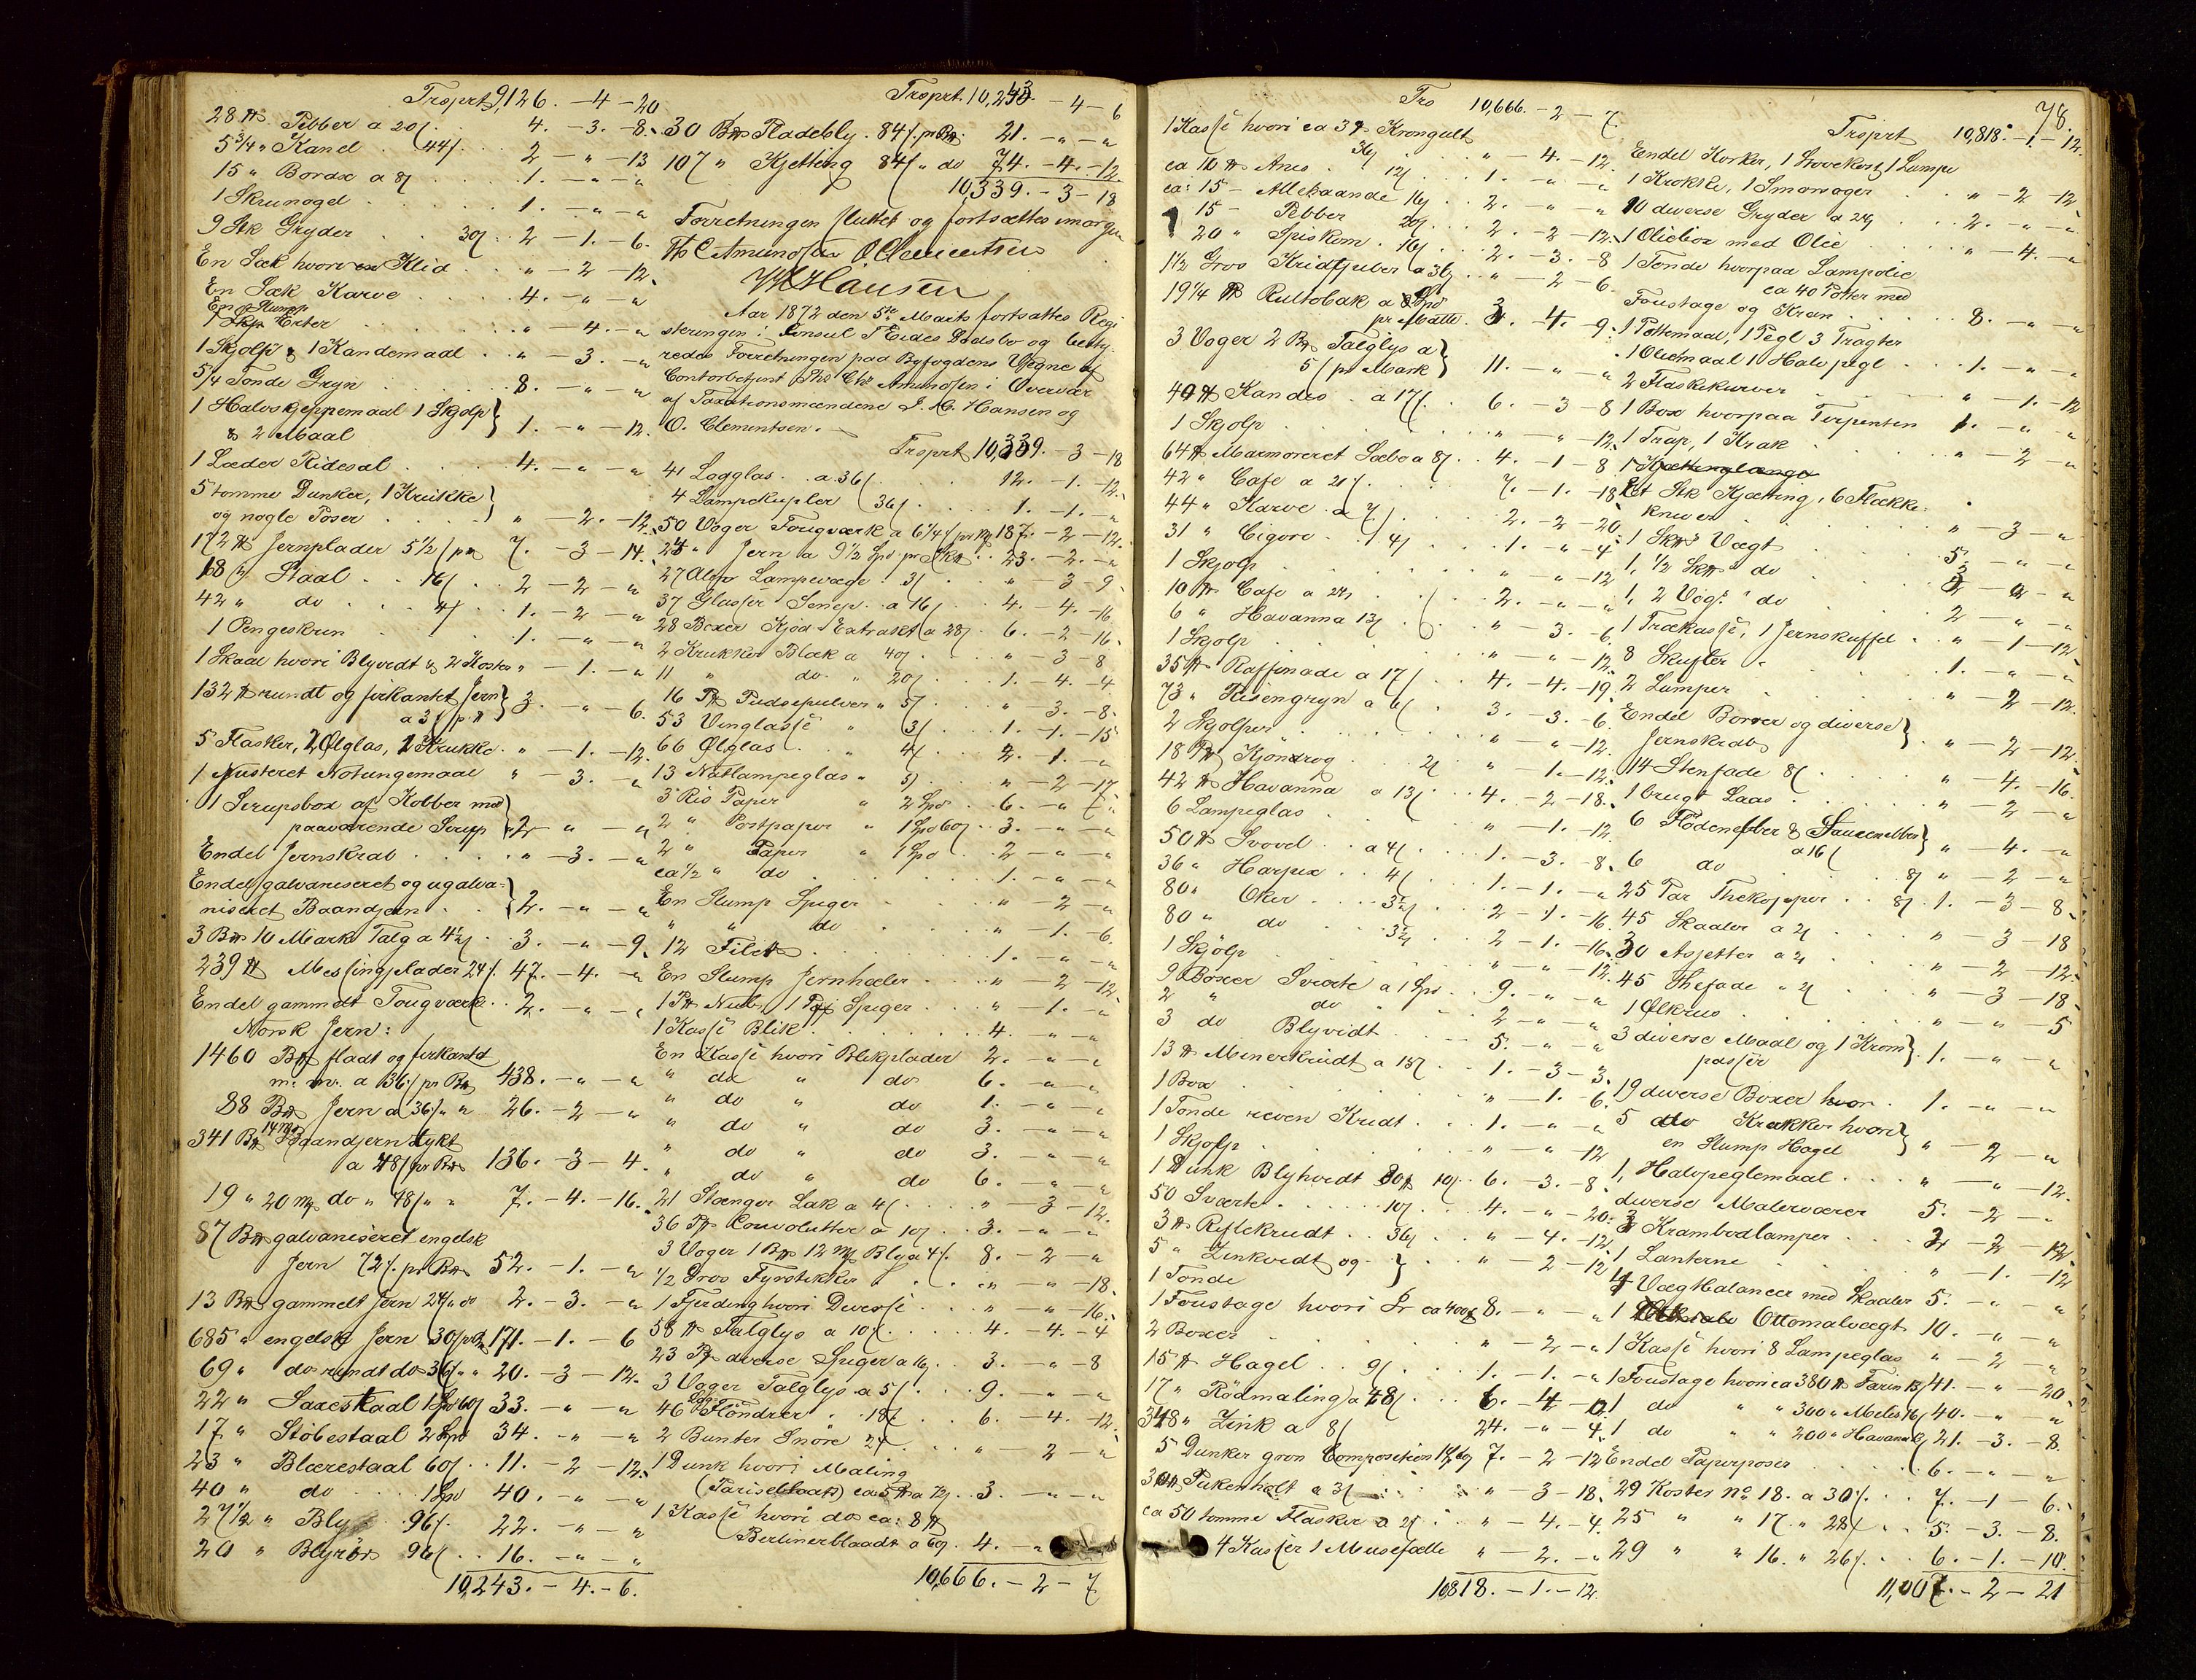 Trsprt 9,126. - 4 - 20
28 ℔ Pebber a 20ſ . . 4. - 3. - 8.
5 3/4 " Kanel . 44ſ . . 2 - " - 13
15 " Borax a 8ſ . . . 1. - " - "
1 Skrunagel . . . . 1. - " - "
9 Stk Gryder . . 30ſ . 2 - 1. - 6.
En Sæk hvori Klid . . " - 2 - 12.
En Sæk Karve . . . 4. - " - "
En Slump
1 Skp. Erter . . . . " - 4. - "
1 Skjolp & 1 Kandemaal . . " - 3. - "
5 1/4 Tønde Gryn . . . 8. - " - "
1 Halvskjeppemaal 1 Skjolp
& 2 Maal } 1. - " - 12.
1 Læder Ridesal . . . 4. - " - "
5 tomme Dunker, 1 Krukke
og nogle Poser . . . } " - 2. - 12.
172 ℔ Jernplader 5 1/2 ſ pr ℔ 7. - 3 - 14.
68 " Staal . . 16ſ . . 2 - 2 - "
42 " do . . . 4ſ . . 1. - 2 - "
1 Pengeskrin . . . . 1. - " - "
1 Skaal hvori Blyvidt & 2 Koster " - 1. - "
132 ℔ rundt og firkantet Jern
a 3 ſ pr ℔ } 3. - " - 6.
5 Flasker, 2 Ølglas, 2 Krukke . " - 1. - 12.
1 Justeret Notungemaal " - 3. - "
1 Sirupsbox af Kobber med
paaværende Sirup } 2 - " - "
Endel Jernskrab . . . . " - 3. - "
Endel galvaniseret og ugalva-
niseret Baandjern . . } 2. - " - "
3 B℔ 10 Mark Talg a 4 1/2 ſ . 3. - " - 9.
239 ℔ Messingplader 24ſ. 47. - 4. - "
Endel gammelt Tougværk . . 2. - " - "
Norsk Jern:
1460 B℔ fladt og firkantet
m. m. a 36ſ pr B℔ 438. - " - "
88 B℔ Jern a 36ſ " " 26. - 2 - "
341 B℔ 14 M℔ Baandjern tykt
a 48ſ pr B℔ 136. - 3 - 4.
19 " 20 M℔ do " 48ſ " " 7. - 4. - 16.
87 B℔ galvaniseret engelsk
Jern 72ſ. pr B℔ 52. - 1. - "
13 B℔ gammelt Jern 24ſ " do 2. - 3. - "
685 " engelsk Jern 30ſ pr B℔ 171. - 1. - 6
69 " do rundt do 36ſ " " 20. - 3 - 12.
22 " Saxestaal 1 Spd 60ſ 33. - " - "
17 " Støbestaal 2 Spd 34. - " - "
23 " Blærestaal 60ſ . . 11. - 2 - 12.
40 " do . . . 1 Spd 40. - " - "
27 1/2 " Bly . 96ſ. 22. - " - "
20 " Blyrör 96ſ . . 16. - " - "
10,243. - 4. - 6.
Trsprt. 10,243. - 4 - 6
30 B℔ Pladebly . 84ſ. pr B℔. 21. - " - "
107 " Kjetting 84ſ " do 74. - 4. - 12.
10,339. - 3 - 18
Forretningen sluttet og fortsættes imorgen
Ths C Amundsen O Clementsen
J M Hansen
Aar 1872 den 5te Marts fortsattes Regi-
steringen i Consul T Eides Dødsbo og besty-
redes Forretningen paa Byfogdens Vegne af
Contorbetjent Ths Chr Amundsen i Overvær
af Taxationsmændene J. M. Hansen og
O. Clementsen.
Trsprt 10,339. - 3 - 18
41 Lagglas . . a 36ſ . . . 12. - 1. - 12.
4 Lampekupler 36ſ . . . 1. - 1. - "
50 Voger Tougværk a 6 1/4 ſ pr M℔ 187. - 2 - 12.
24 " Jern a 9 1/2 Spd pr Sk℔ . . 23. - 2. - "
27 Alen Lampevæge . 3ſ . . " - 3 - 9.
37 Glasser Senep . a 16ſ . . 4. - 4. - 16.
28 Boxer Kjød-Extrakt a 28ſ . 6. - 2 - 16.
2 Krukker Blæk a 40ſ . . . " - 3 - 8
11 " do. " 20ſ . . . 1. - 4. - 4
16 P℔ Pudsepulver " 5ſ . . " - 3. - 8.
53 Vinglasse " 3ſ . . 1. - 1. - 15
66 Ølglas . . " 4ſ . . 2. - 1. - "
13 Natlampeglas " 5ſ . . " - 2 - 17
3 Ris Papir " 2 Spd . . 6. - " - "
2 " Postpapir " 1 Spd 60ſ . . 3. - " - "
2 " Papir " 1 Spd . . 2 - " - "
ca 1/2 " do . . . . . 1. - " - "
En Slump Spiger . . . . " - 2 - "
" " do . . . . " - 1. - 6.
12 File . . . . . . 1. - " - "
En Slump Jernhæler . . . " - 2 - 12.
1 P℔ Nud, 1 P℔ Spiger . . " - 1. - "
1 Kasse Blik . . . . . 4. - " - "
En Kasse hvori Blikplader 2. - " - "
" do " do 6. - " - "
" do " do 1. - " - "
" do " do 3. - " - "
" do " do 3. - " - "
" do " do 6. - " - "
21 Stænger Lak a 4ſ . . . " - 3 - 12.
36 P℔ Convolutter a 10ſ . . 3. - " - "
3 Voger 1 B℔ 12 M℔ Bly a 4ſ. 8. - 2 - "
1/2 Gros Fyrstikker . . . " - " - 18.
1 Fjerding hvori Diverse . . " - " - 16.
58 ℔ Talglys a 10ſ . . . . 4. - 4. - 4
23 P℔ diverse Spiger a 16ſ . . 3. - " - 8
3 Voger Talglys a 5ſ . . . 9. - " - "
46 Flöndrer . . 18ſ . . . 6. - 4. - 12.
2 Bunter Snöre 24ſ . . . " - 2 - "
1 Dunk hvori Maling
(Pariserblaat) ca 5 ℔ a 72ſ . . 3. - " - "
1 Kasse hvori do ca: 8 ℔
Berlinerblaadt a 60ſ . 4. - "
10,666. - 2 - 7
78.
Trs 10,666. - 2 - 7
1 Kasse hvori ca 3 ℔ Krongult
36ſ . . . " - 4. - 12.
ca 10 ℔ Anis . . 12ſ . . 1. - " - "
ca: 15 - Allehaande 16ſ . . 2. - " - "
15 - Pebber . 20ſ . . 2. - 2 - 12.
20 " Spiskom . 16ſ . . 2. - 3. - 8
1 1/2 Gros Kridtpiber a 36ſ . . " - 2 - 6.
19 1/4 ℔ Rultobak a Spd
pr Matte . 3. - 4. - 9.
3 Voger 2 B℔ Talglys a
5ſ pr Mark } 11. - " - "
40 ℔ Kandis . a 17ſ . . 6. - 3 - 8
1 Skjolp . . . . . " - " - 12.
64 ℔ Marmoreret Sæbe a 8ſ . . 4. - 1 - 8
42 " Cafe a 21ſ. . . . 7. - 1. - 18.
44 " Karve . a 7ſ . . . 2. - 2 - 20.
31 " Cigore . . 4ſ . . 1. - " - 4.
1 Skjolp . . . . . " - " - 12
10 ℔ Cafe a 24ſ . . . 2. - " - "
6 " Havanna 13ſ . . . " - 3. - 6.
1 Skjolp . . . . . " - " - 12.
35 ℔ Raffinade a 17ſ . . 4. - 4. - 19.
73 " Risengryn a 6ſ . . 3. - 3. - 6.
2 Skjolper . . . . " - " - 12.
18 P℔ Kjönrog . . 2ſ . " - 1. - 12.
42 ℔ Havanna a 13ſ . . 4. - 2 - 18.
6 Lampeglas . . . . " - 1. - 12.
50 ℔ Svovel . . a 4ſ . . 1. - 3. - 8.
36 " Harpix . . 4ſ . . 1. - 1. - "
80 " Oker . . . 3 1/2 ſ . . 2 - 1. - 16.
80 " do . . . 3 1/2 ſ . . 2 - 1. - 16.
1 Skjölp . . . . . " - " - 12.
9 Boxer Sværte a 1 Spd . . 9. - " - "
2 " do . . . . 2 - " - "
3 do Blyvidt . . . 5. - " - "
13 ℔ Minerkrudt a 15ſ . . 1. - 3 - 3.
1 Box . . . . . . " - 1. - 6.
1 Tønde reven Kridt . . . 1. - " - "
1 Skjolp . . . . . " - " - 12
1 Dunk Blyhvidt 80 ℔ 10ſ . . 6. - 3. - 8.
50 Sværte . . . . 10ſ . . 4. - " - 20.
3 ℔ Riflekrudt . . 36ſ . . " - 4. - 12.
5 " Zinkvidt og
1 Tønde } . . " - 2 - 12
1 Foustage hvori Lr ca 400 ℔ 8. - " - "
2 Boxer . . . . . " - 2 - "
15 ℔ Hagel . . 9ſ . . . 1. - 1. - "
17 " Rödmaling a 48ſ . . 6. - 4 - "
348 " Zink a 8ſ 24. - " - 4.
5 Dunker grøn Composition 7. - 2 - 12
30 ℔ Pukenholt a 3ſ . . . " - 3 - 18.
ca 50 tomme Flasker a 2ſ . . " - 4. - 4.
4 Kasser 1 Musefælle " - 2. - "
10,818. - 1. - 12.
Trsprt 10,818. - 1. - 12.
Endel Korker, 1 Stovekost, 1 Lampe
1 Krokke, 1 Smørvager . . " - 2 - 12
10 diverse Gryder a 24ſ . . 2. - " - "
1 Oliebox med Olie . . . " - 4. - "
1 Tønde hvorpaa Lampolie
ca 40 Potter med
Foustage og Kran . . . 8. - " - "
1 Pottemaal, 1 Pegl 3 Tragter
1 Oliemaal 1 Halvpegl . . 1. - " - "
2 Flaskekurver . . . . " - 1. - 12
1 Box hvorpaa Terpentin 1. - " - "
1 Trap, 1 Krak . . . . " - 2 - "
1 Kjættinglænge
Et Stk Kjætting, 6 Flække-
kniver . . . . . " - 3 - "
1 Sk℔s Vægt . . . . 5. - " - "
1, 1/2 Sk℔ do . . . . 3 - " - "
1, 2 Vogs " do . . . . 2 - " - "
1 Trækasse, 1 Jernskuffel . . " - 1 - 12.
8 Skufler . . . . . 1. - " - "
2 Lamper . . . . . " - 2 - 12.
Endel Borrer og diverse
Jernskrab } . " - 2 - 12.
14 Stenfade 8ſ . . . . " - 4. - 16.
1 brugt Laas . . . . " - 2 - "
6 Flödenebber & Saucenebber
a 16ſ } " - 4. - "
6 do 8ſ " - 2 - "
25 Par Thekopper . . 8ſ . 1. - 3 - 8.
45 Skaaler a 2ſ . . . " - 3 - 18
30 Asjetter a 2ſ . . . " - 2 - 12.
45 Thefade " 2ſ . . . " - 3 - 18.
1 Ølkrus . . . . . " - " - 5
3 diverse Maal og 1 Krom
passer } . 1. - " - "
19 diverse Boxer hvori . 1. - " - "
5 do Krukker hvori
en Slump Hagel } " - 2 - "
1, Halvpeglemaal . . . " - " - 12.
diverse Malervarer 5. - 2 - "
3 Krambodlamper . . . 2 - 2 - 12.
1 Lanterne . . . . " - 1. - 12
4 Vægtbalancer med Skaaler 5. - " - "
1 Ottomalvægt 10. - " - "
1 Kasse hvori 8 Lampeglas " - 2 - "
1 Foustage hvori ca 380 ℔ Farin 13ſ 41. - " - 20.
1 do " " 300 " Melis 16ſ 40. - " - "
1 do " " 200 " Havana 21. - 3. - 8.
Endel Papirposer . . . . 6. - " - "
29 Koster No 18. a 30ſ. . . 7. - 1 - 6.
25 " " 17. " 28ſ . . 5. - 3. - 8.
29 " " 16. " 26ſ. . . 6. - 1. - 10.
11,007. - 2 - 21